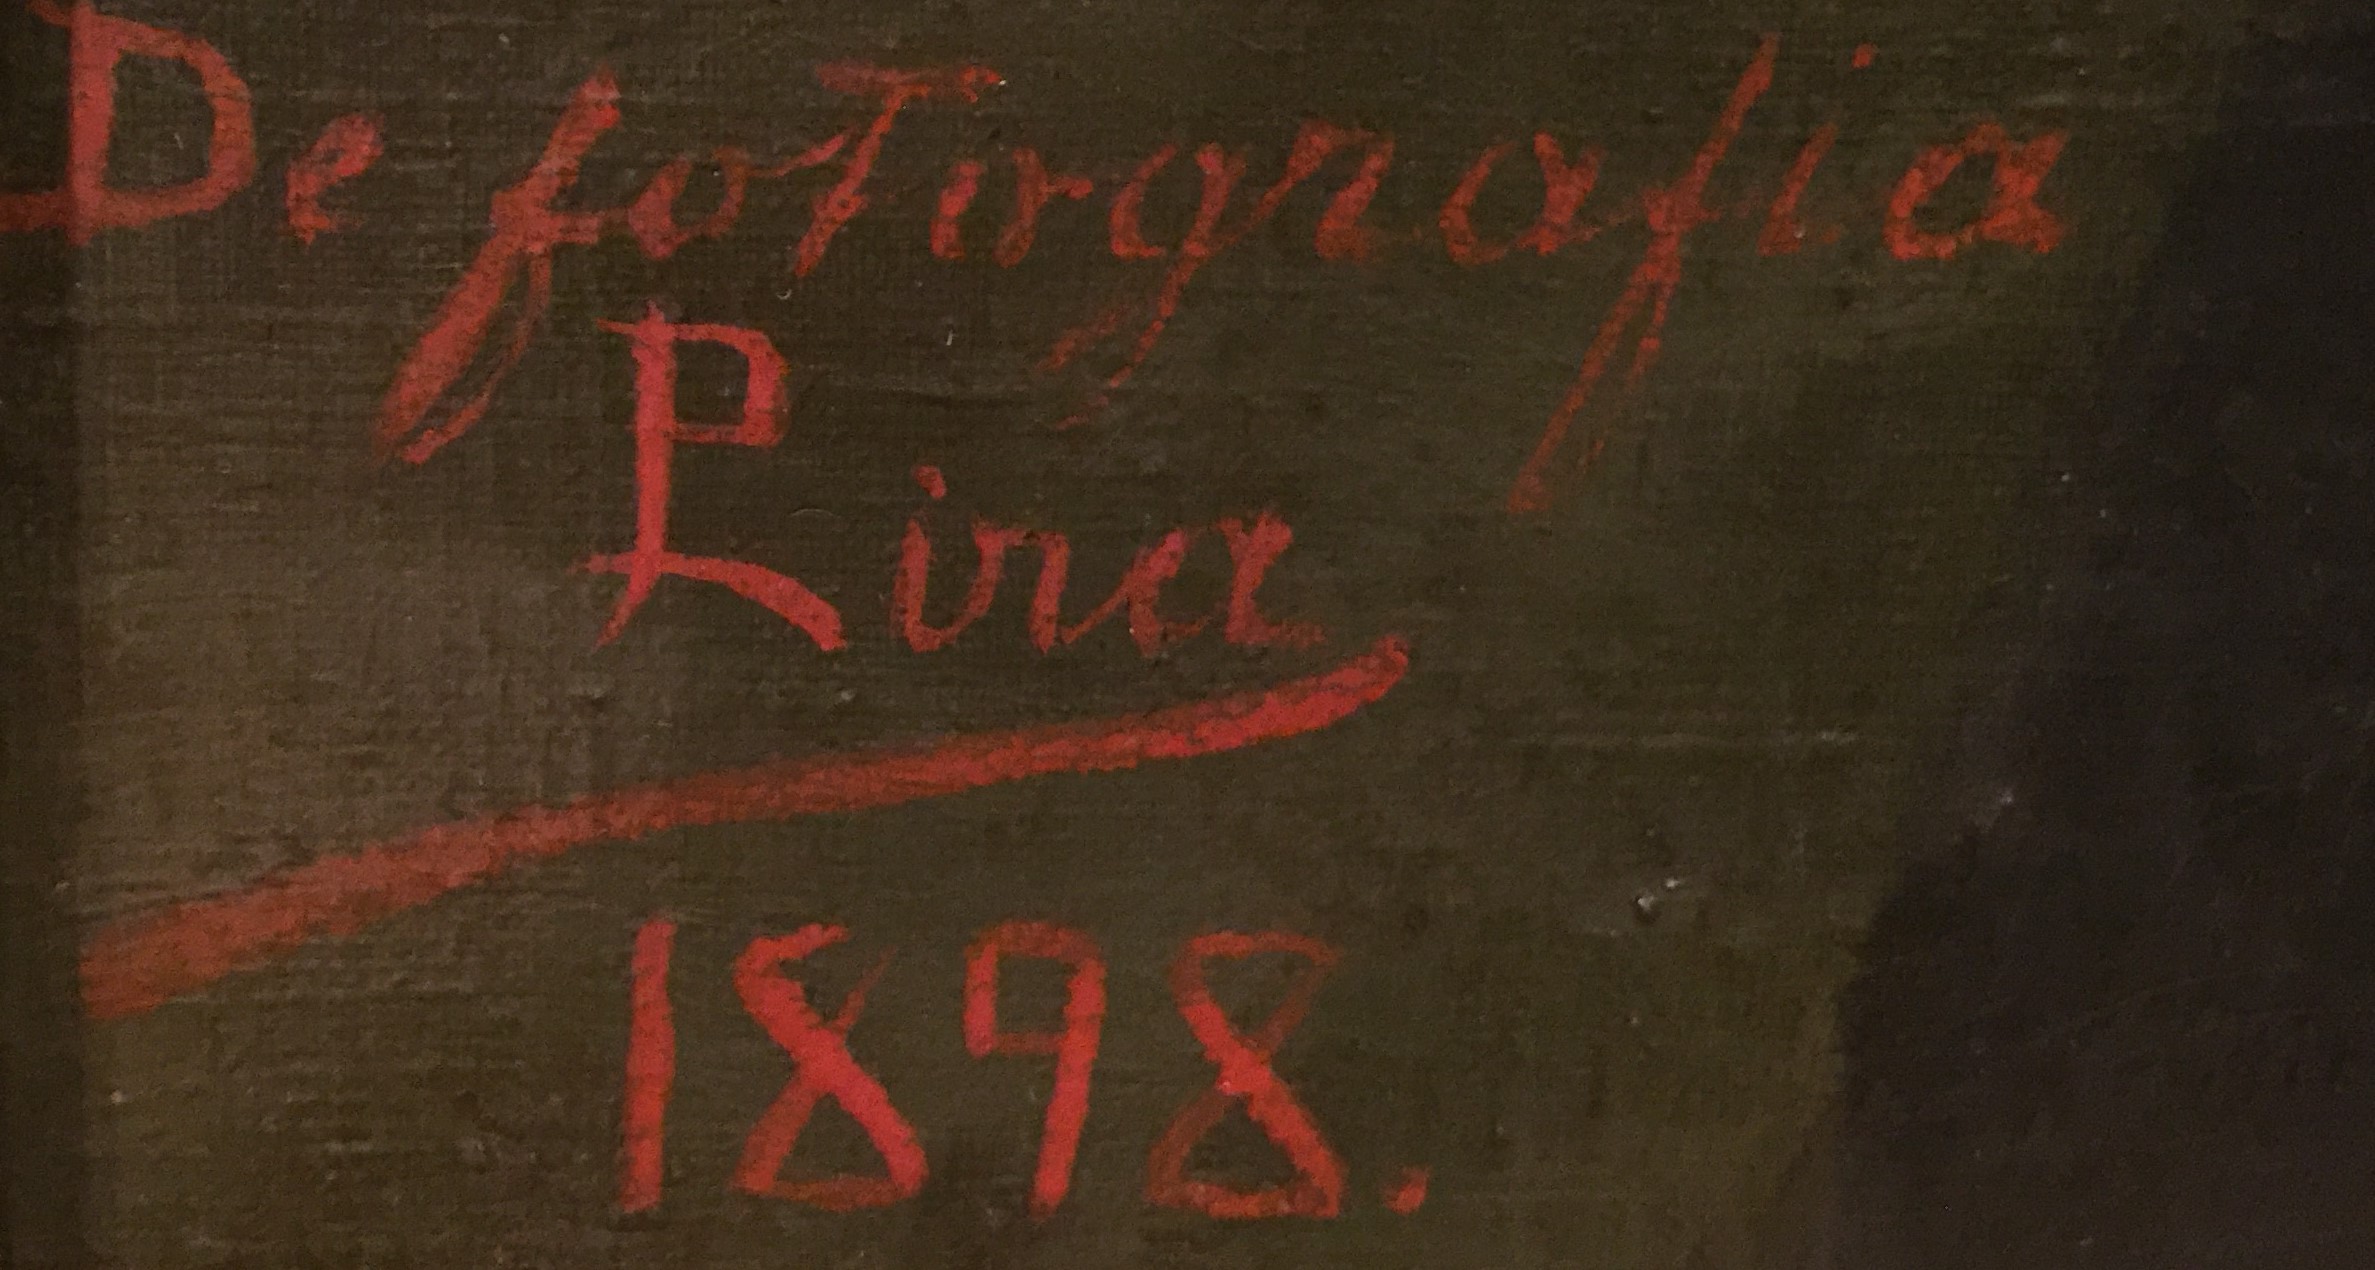 De fotografia
PLira
1898.